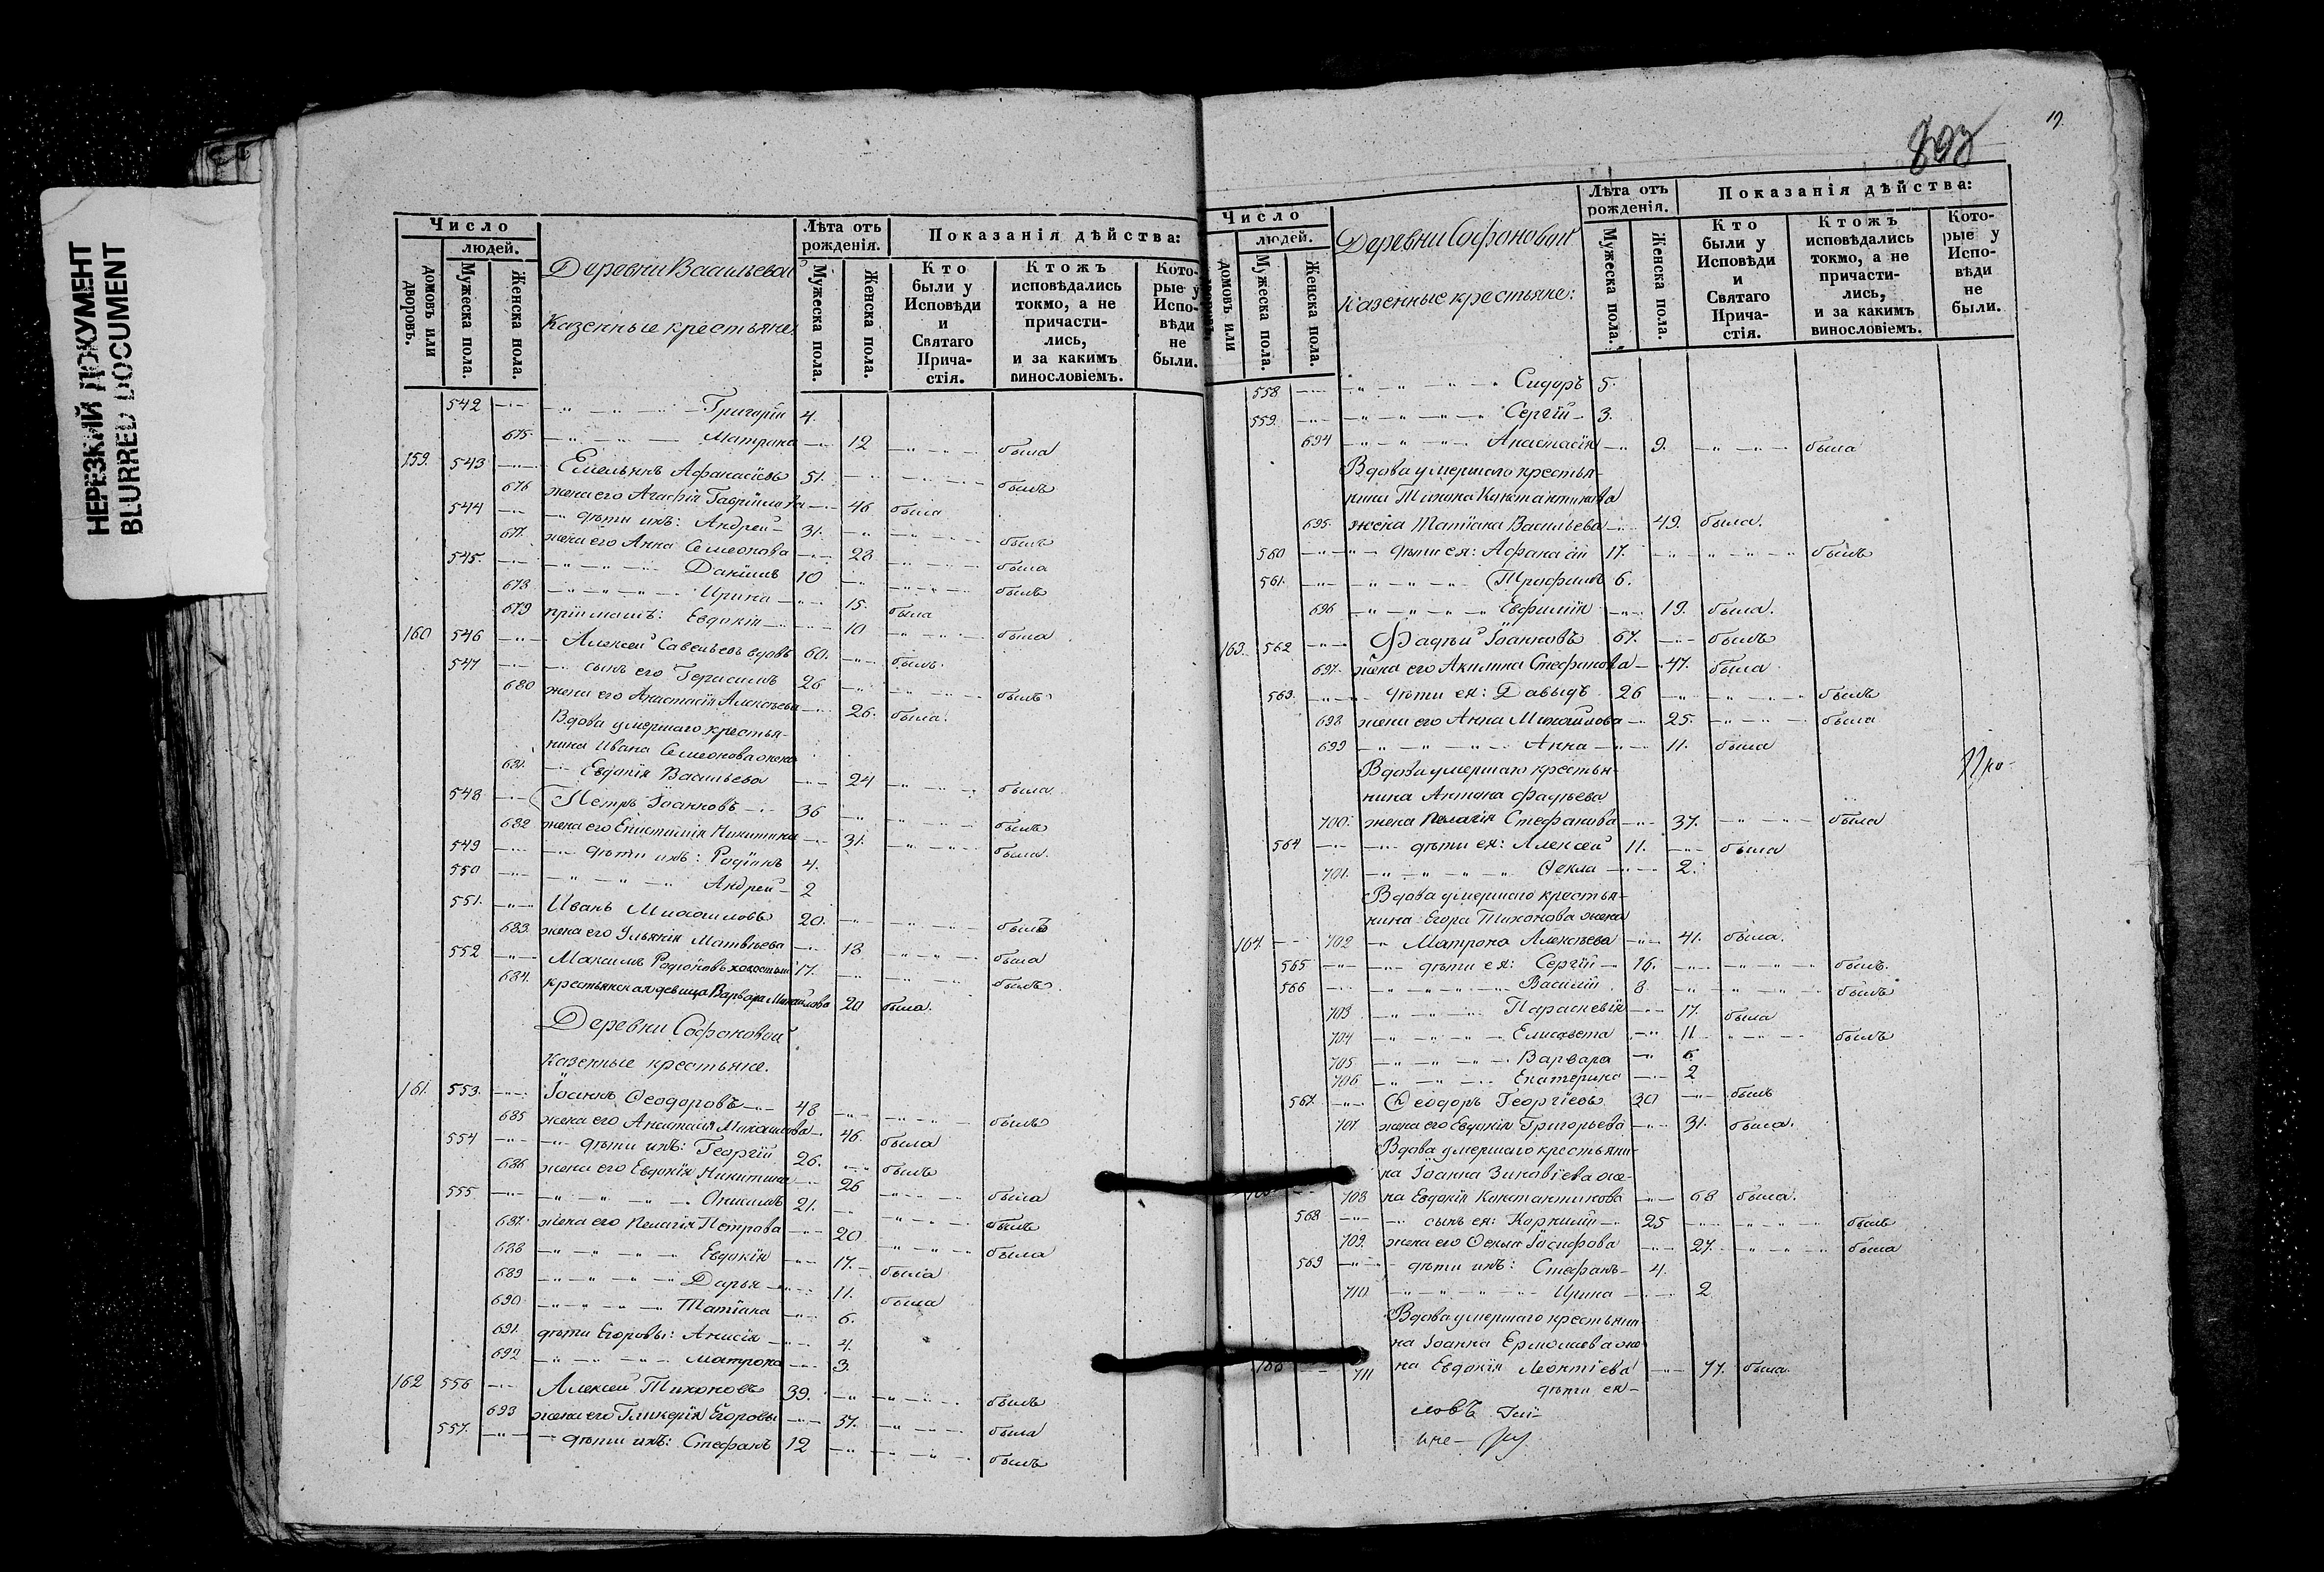 НЕРЕЗКИЙ ДОКУМЕНТ
BLURRED DOCUMENT
Число
людей.
домовъ или дворовъ.
Мужеска пола.
Женска пола.
Деревни Васильевой
Казенные крестьяне:
Лѣта отъ рожденія.
Мужеска пола.
Женска пола.
Показанія дѣйства:
Кто были у Исповѣди и Святаго Причастія.
Ктожъ исповѣдались токмо, а не причастились, и за какимъ винословіемъ.
Которые у Исповѣди не были.
542 Григорій 4.
675. Матрона 12 была
159. 543 Емельянъ Афанасіевъ 51. былъ
676 жена его Агафія Гавріилова 46 была
544 дѣти ихъ: Андрей 31. былъ
677. жена его Анна Семеонова 28 была
545. Даніилъ 10 былъ
678 Ирина 15. была
679 пріимашъ: Евдокія 10 была
160 546 Алексей Савельевъ вдовъ 60. былъ.
547 сынъ его Герасимъ 26 былъ
680 жена его Анастасія Алексѣева 26. была.
Вдова умершаго крестья-
нина Ивана Семеонова жена
681. Евдокія Васильева 24 была
548 Петръ Іоанновъ 36 былъ
682 жена его Епистимія Никитина 31. была.
549 дѣти ихъ: Родіонъ 4.
550 Андрей 2
551. Иванъ Михаиловъ 20. былъ
683. жена его Ульянія Матвѣева 18 была
552 Максимъ Родіоновъ холостый 17. былъ
684. крестьянская девица Варвара Михайлова 20 была.
Деревни Софоновой
Казенные крестьяне.
161. 553. Іоаннъ Ѳеодоровъ 48 былъ
685 жена его Анастасія Михаилова 46. была
554 дѣти ихъ: Георгій 26. былъ
686 жена его Евдокія Никитина 26 была
555 Онисимъ 21. былъ
687. жена его Пелагія Петрова 20 была
688 Евдокія 17. была
689 Дарья 11. была
690 Татіана 6.
691. дѣти Егоровы: Анисія 4.
692 Матрона 3.
162 556 Алексей Тихоновъ 39. былъ
693 жена его Гликерія Егорова 37. была
557. дѣти ихъ: Стефанъ 12 былъ
19.
Число
людей.
домовъ или дворовъ.
Мужеска пола.
Женска пола.
Деревни Софоновой
Казенные крестьяне:
Лѣта отъ рожденія.
Мужеска пола.
Женска пола.
Показанія дѣйства:
Кто были у Исповѣди и Святаго Причастія.
Ктожъ исповѣдались токмо, а не причастились, и за какимъ винословіемъ.
Которые у Исповѣди не были.
558 Сидоръ 5.
559. Сергій 3.
694 Анастасія 9. была
Вдова умершаго крестья-
нина Тихона Константинова
695. жена Татіана Васильева 49. была.
560 дѣти ея: Афанасій 17. былъ
561. Трифилъ 6.
696 Евфимія 19. была.
163. 562 Фадѣй Іоанновъ 67. былъ
697. жена его Акилина Стефанова 47. была
563. дѣти ея: Давыдъ 26 былъ
698 жена его Анна Михаилова 25. была
699 Анна 11. была
Вдова умершаго крестья-
нина Антона Фадѣева
700. жена Пелагія Стефанова 37. была
564 дѣти ея: Алексей 11. была
701. Ѳекла 2.
Вдова умершаго крестья-
нина Егора Тихонова жена
164. 702 Матрона Алексѣева 41. была.
565 дѣти ея: Сергій 16. былъ.
566 Василій 8 былъ
703 Параскевія 17. была
704 Елисавета 11 былъ
705 Варвара 6.
706 Екатерина 2
567. Ѳеодоръ Георгіевъ 30 былъ
707. жена его Евдокія Григорьева 31. была.
Вдова умершаго крестьяни-
на Іоанна Зиновіева же-
708 на Евдокія Константинова 68 была.
568 сынъ ея: Корнилій 25 былъ
709. жена его Ѳекла Іосифова 27. была
569 дѣти ихъ: Стефанъ 4.
710 Ирина 2
Вдова умершаго крестьяни-
на Іоанна Ермолаева же-
711 на Евдокія Леонтіева 77. была
дѣти ея